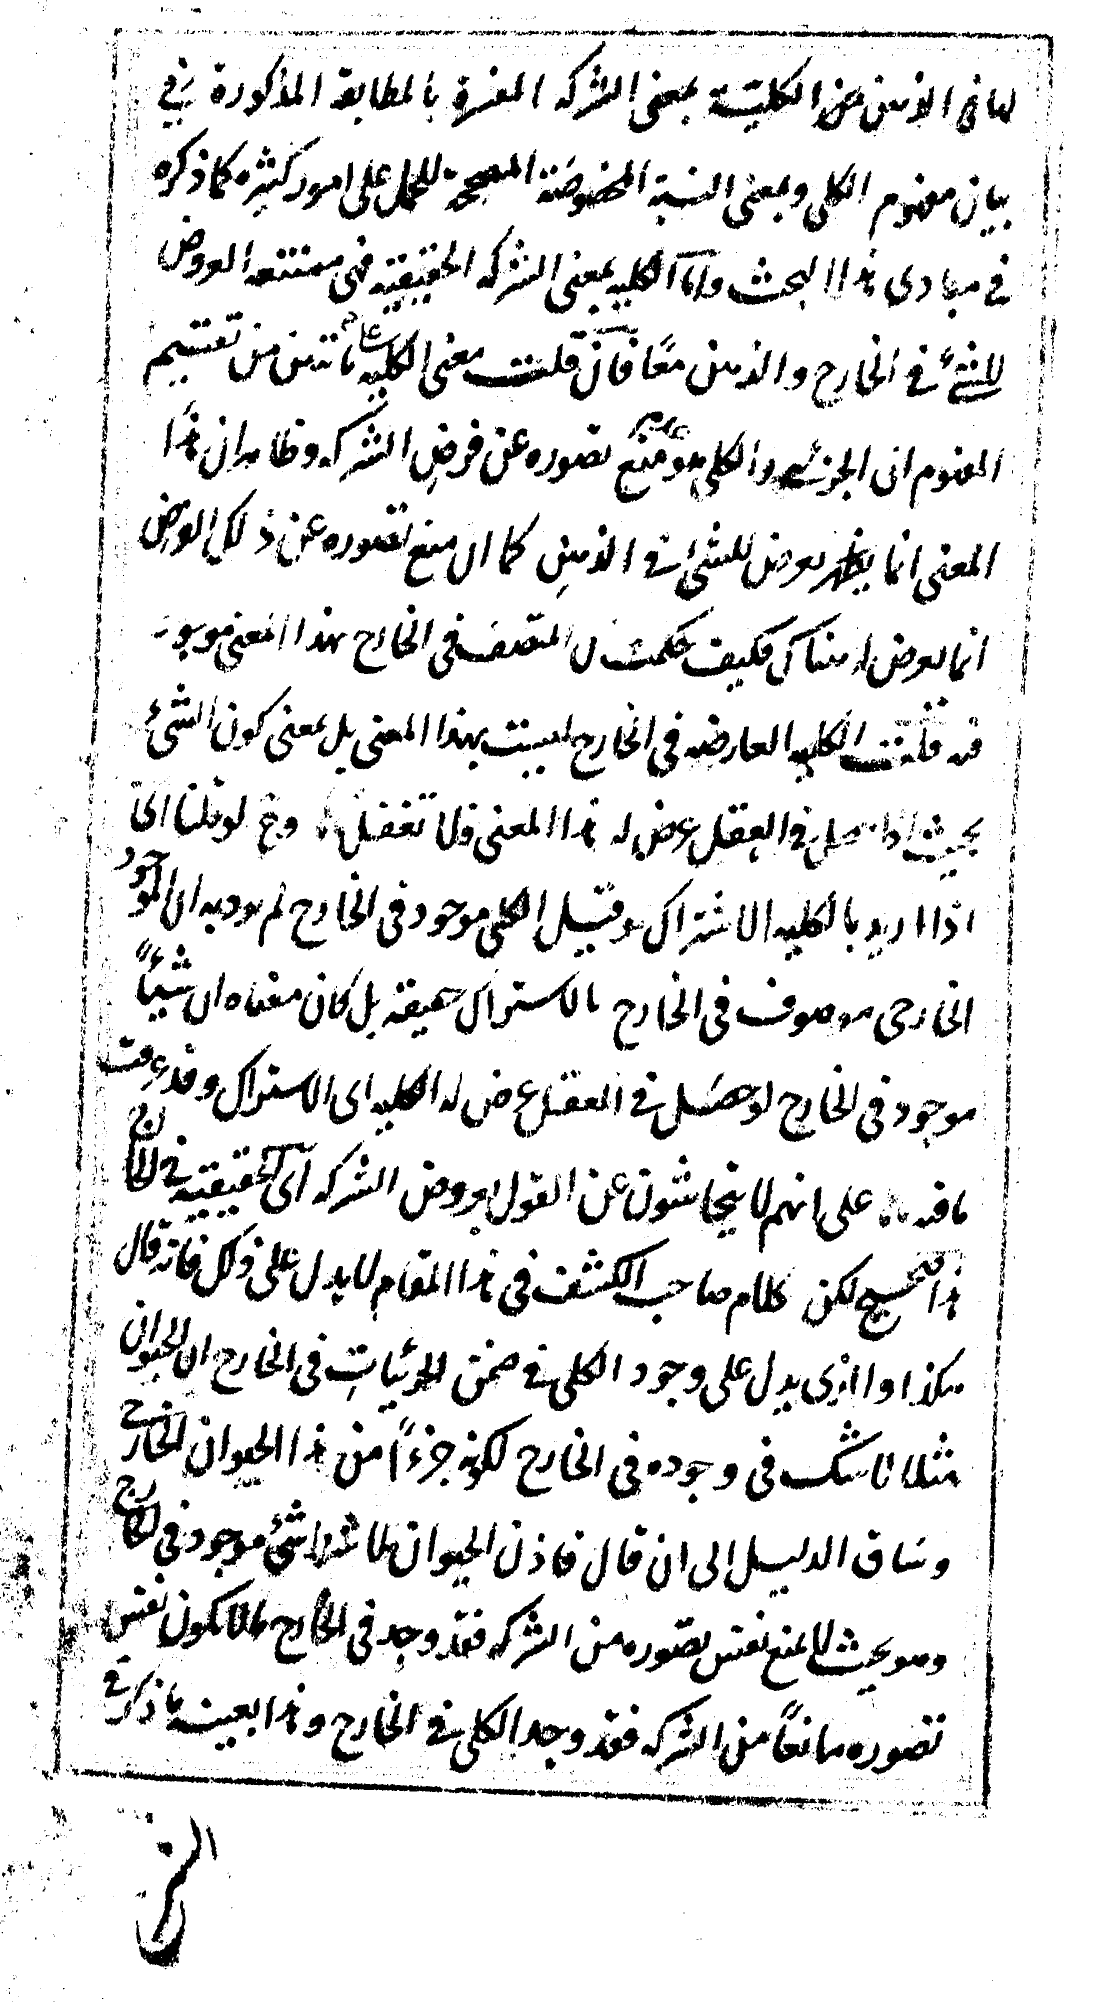 لما في الذهن من الكلية بمعنى الشركه المفسرة بالمطابقة المذكورة في
بيان مفهوم الكلي وبمعنى النسبة المخصوصة المصححة للحمل على امور كثيره كما ذكره
في مبادى هذا البحث واما الكليه بمعنى الشركه الحقيقيه فهى ممتنعه العروض
للشئ فى الخارج والذهن معًا فان قلت معنى الكليه على ما تبين من تقسيم
المفهوم الى الجزئى والكلى هو منع تصوره عن فرض الشركه وظاهر ان هذا
المعنى انما يعرض للشئ فى الذهن كما ان منع تصوره عن ذلك الفرض
انما يعرض له هناك فكيف حكمت ان المتصف فى الخارج بهذا المعنى موجود
فيه قلت الكليه العارضه فى الخارج ليست بهذا المعنى بل بمعنى كون الشئ
بحيث اذا حصل فى العقل عرض له هذا المعنى فلا تغفل وح لو قلنا
اذا اريد بالكليه الاشتراك وقيل الكلى موجود فى الخارج لم يرد به ان الموجود
الخارجى موصوف فى الخارج بالاشتراك حقيقة بل كان معناه ان شيئًا
موجود فى الخارج لو حصل فى العقل عرض له الكليه اى الاشتراك وقد عرفت
ما فيه على انهم لا يتحاشون عن القول بعروض الشركه اى الحقيقيه فى الخارج
هذا صحيح لكن كلام صاحب الكشف فى هذا المقام لا يدل على ذلك فانه قال
هكذا والذى يدل على وجود الكلى فى ضمن الجزئيات فى الخارج ان الحيوان
مثلا لا شك فى وجوده فى الخارج لكونه جزءًا من هذا الحيوان الخارجى
وساق الدليل الى ان قال فاذن الحيوان لا بشرط شئ موجود فى الخارج
وهو بحيث لا يمنع نفس تصوره من الشركه فقد وجد فى الخارج ما لا يكون نفس
تصوره مانعًا من الشركه فقد وجد الكلى فى الخارج وهذا بعينه ما ذكر فى